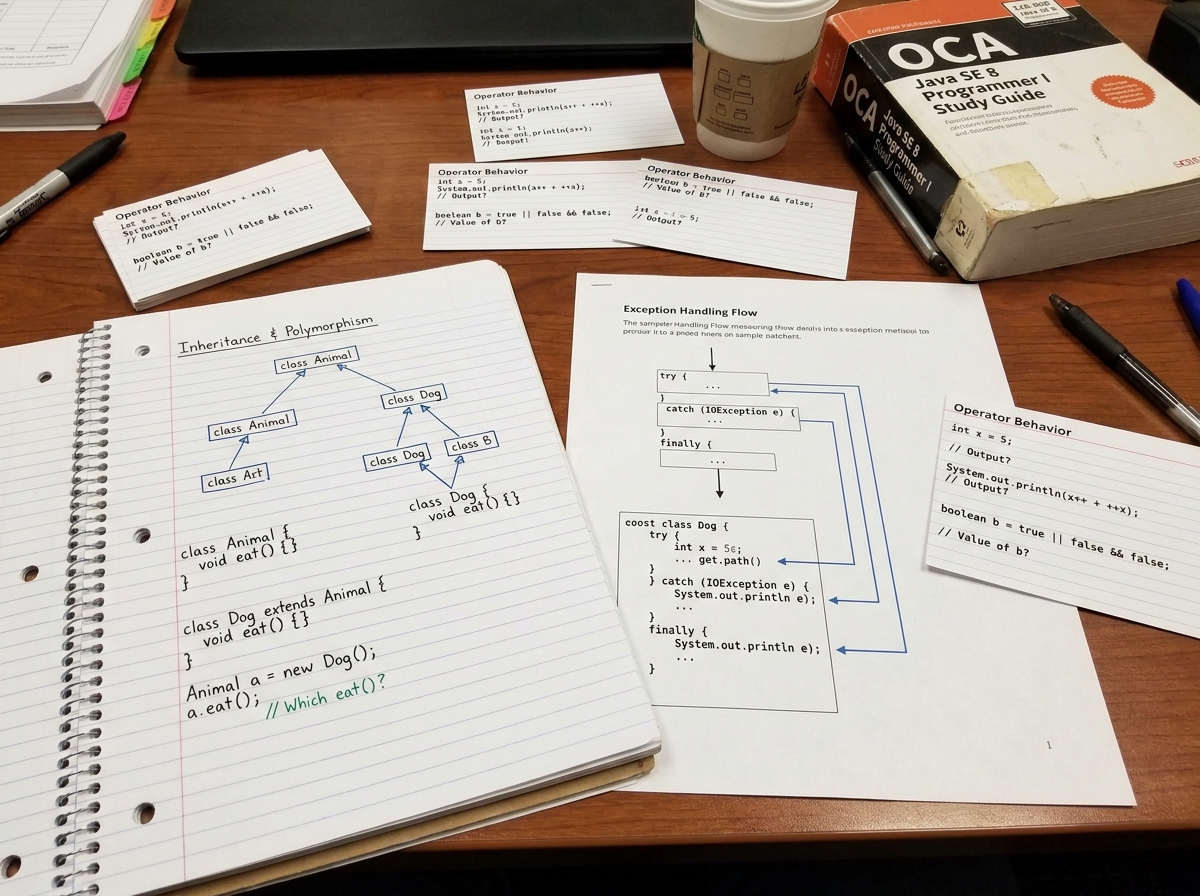 Operator Behavior
System.out.println(s++ + ++s);
// Output?
// Output?
Operator Behavior
// Output?
boolean b = true || false && false;
// Value of b?
Operator Behavior
int s = 5;
System.out.println(a++ + ++a);
// Output?
boolean b = true || false && false;
// Value of b?
Operator Behavior
boolean b = true || false && false;
// Value of B?
// Output?
OCA
Java SE 8
Programmer I
Study Guide
OCA
Java SE 8
Programmer I
Study Guide
Inheritance & Polymorphism
class Animal
class Dog
class Animal
class Dog
class B
class Art
class Dog {
void eat() {}
}
class Animal {
void eat() {}
}
class Dog extends Animal {
void eat() {}
}
Animal a = new Dog();
a.eat(); // Which eat()?
Exception Handling Flow
The Handling Flow
try {
...
}
catch (IOException e) {
...
}
finally {
...
coost class Dog {
try {
int x = 56;
... get.path()
}
} catch (IOException e) {
System.out.println e);
...
}
finally {
System.out.println e);
...
}
1
Operator Behavior
int x = 5;
// Output?
System.out.println(x++ + ++x);
// Output?
boolean b = true || false && false;
// Value of b?